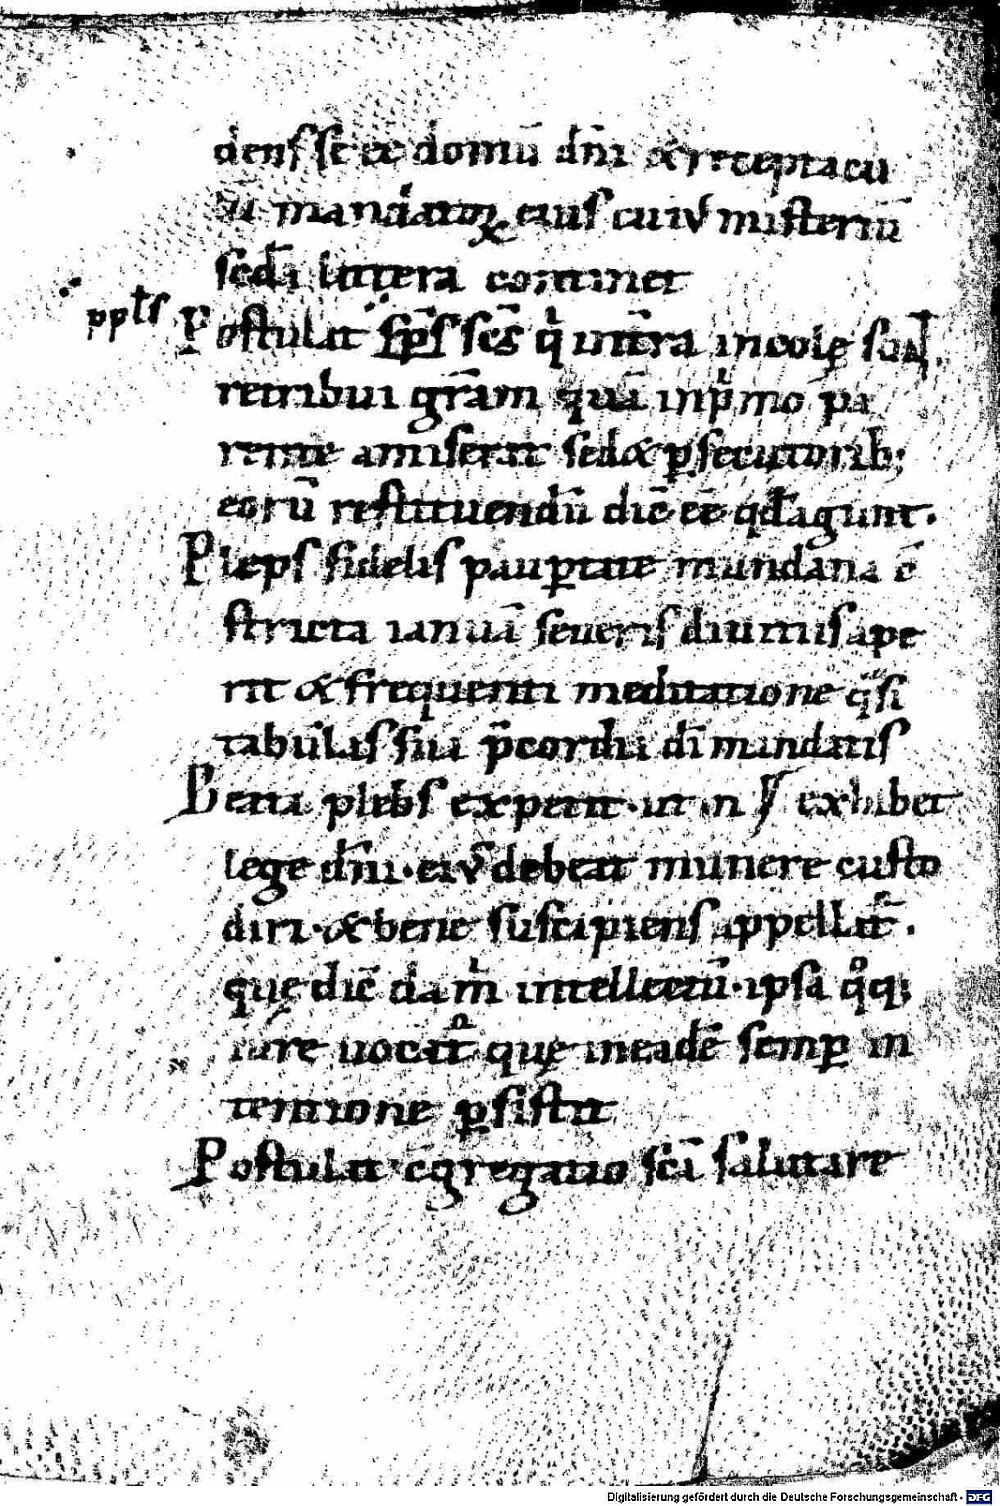 dens se eē domū dn̄i & receptacu
lū mandatoꝝ eius cuiꝰ misteriū
scd̄a littera continet
pplˢ Postulat sp̄s sc̄s qͥ intͣ in eolę
retribui grām quā inpͥmo pa
rente amiserat sed & ꝑsecutorib;
eorū restituendū dic̄ eē qd̄ agunt.
Pleps fidelis pauꝑtate mundana c̄
stricta ianuā seueris diuitiis ape
rit & frequenti meditatione qͣsi
tabulis sui p̄cordii dī mandatis
Beata plebs expetit. ut in exhibet
lege dn̄i. eiꝰ debeat munere custo
diri. & bene suscipiens appellat̄.
quę dic̄ da m intellectū. ipsa qͦq;
iure uocat̄ quę in eadē semꝑ in
tentione ꝑsistit
Postulat c̄gregatio sc̄a salutare
Digitalisierung gefördert durch die Deutsche Forschungsgemeinschaft - DFG